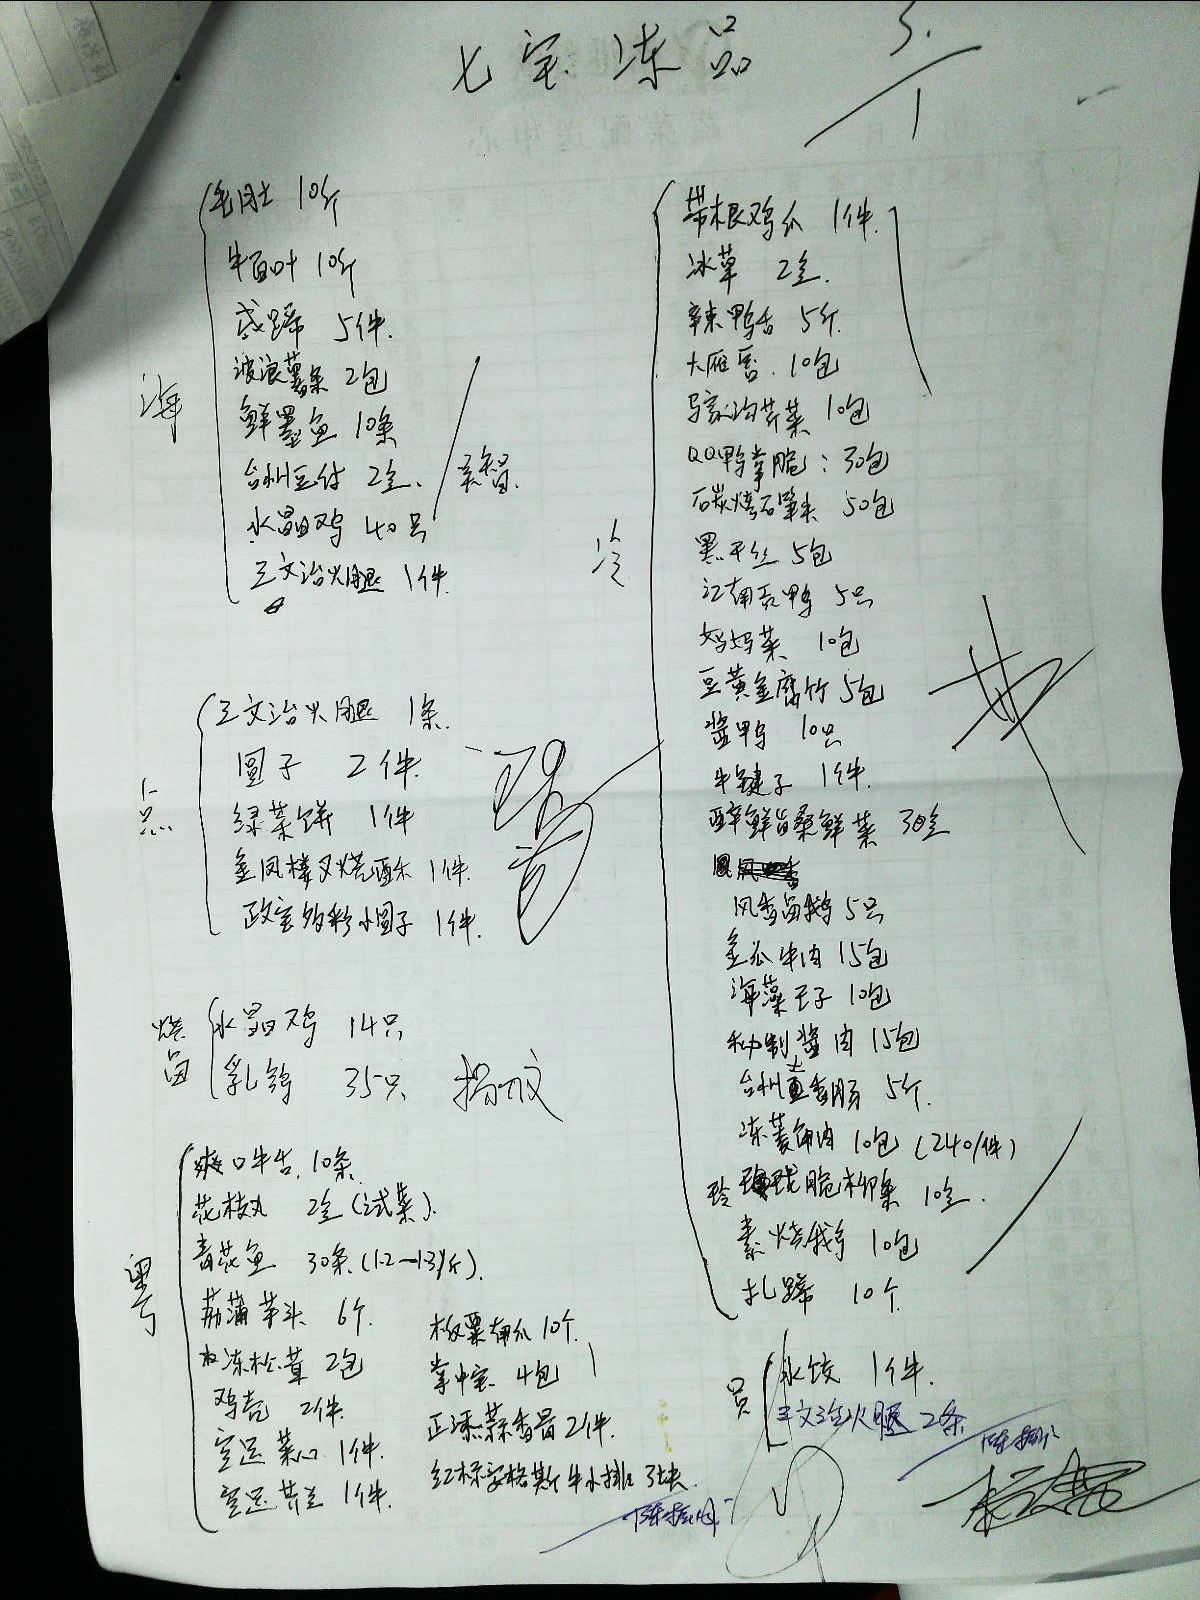 七宝冻品
3/1
海
毛肚 10斤
牛百叶 10斤
5件.
波浪薯条 2包
鲜墨鱼 10条
台州豆付 2盒.
水晶鸡 40只
三文治火腿 1件.
点
三文治火腿 1条.
圆子 2件.
绿菜饼 1件
金凤楼叉烧酥 1件.
小圆子 1件.
烧卤
水晶鸡 14只
乳鸽 35只
粤
爽口牛舌. 10条.
花枝丸 2盒(试菜).
青花鱼 30条.(1.2—1.3/斤).
荔蒲芋头 6个.
冻松茸 2包
鸡壳 2件.
空运菜心 1件.
空运芥兰 1件.
板栗南瓜 10个.
掌中宝 4包
蒜香骨 2件.
红标安格斯牛小排 3块.
冷
带根鸡爪 1件.
冰草 2盒.
辣鸭舌 5斤.
10包
马家沟芹菜 10包
QQ鸭掌脆: 30包
50包
黑干丝 5包
5只
妈妈菜 10包
豆黄金腐竹 5包
酱鸭 10只
牛键子 1件.
30盒
5只
金瓜牛肉 15包
10包
秘制酱肉 15包
台州香肠 5斤.
冻菱角肉 10包 (240/件)
10盒.
素烧鹅 10包
扎蹄 10个.
员
水饺 1件.
三文治火腿 2条